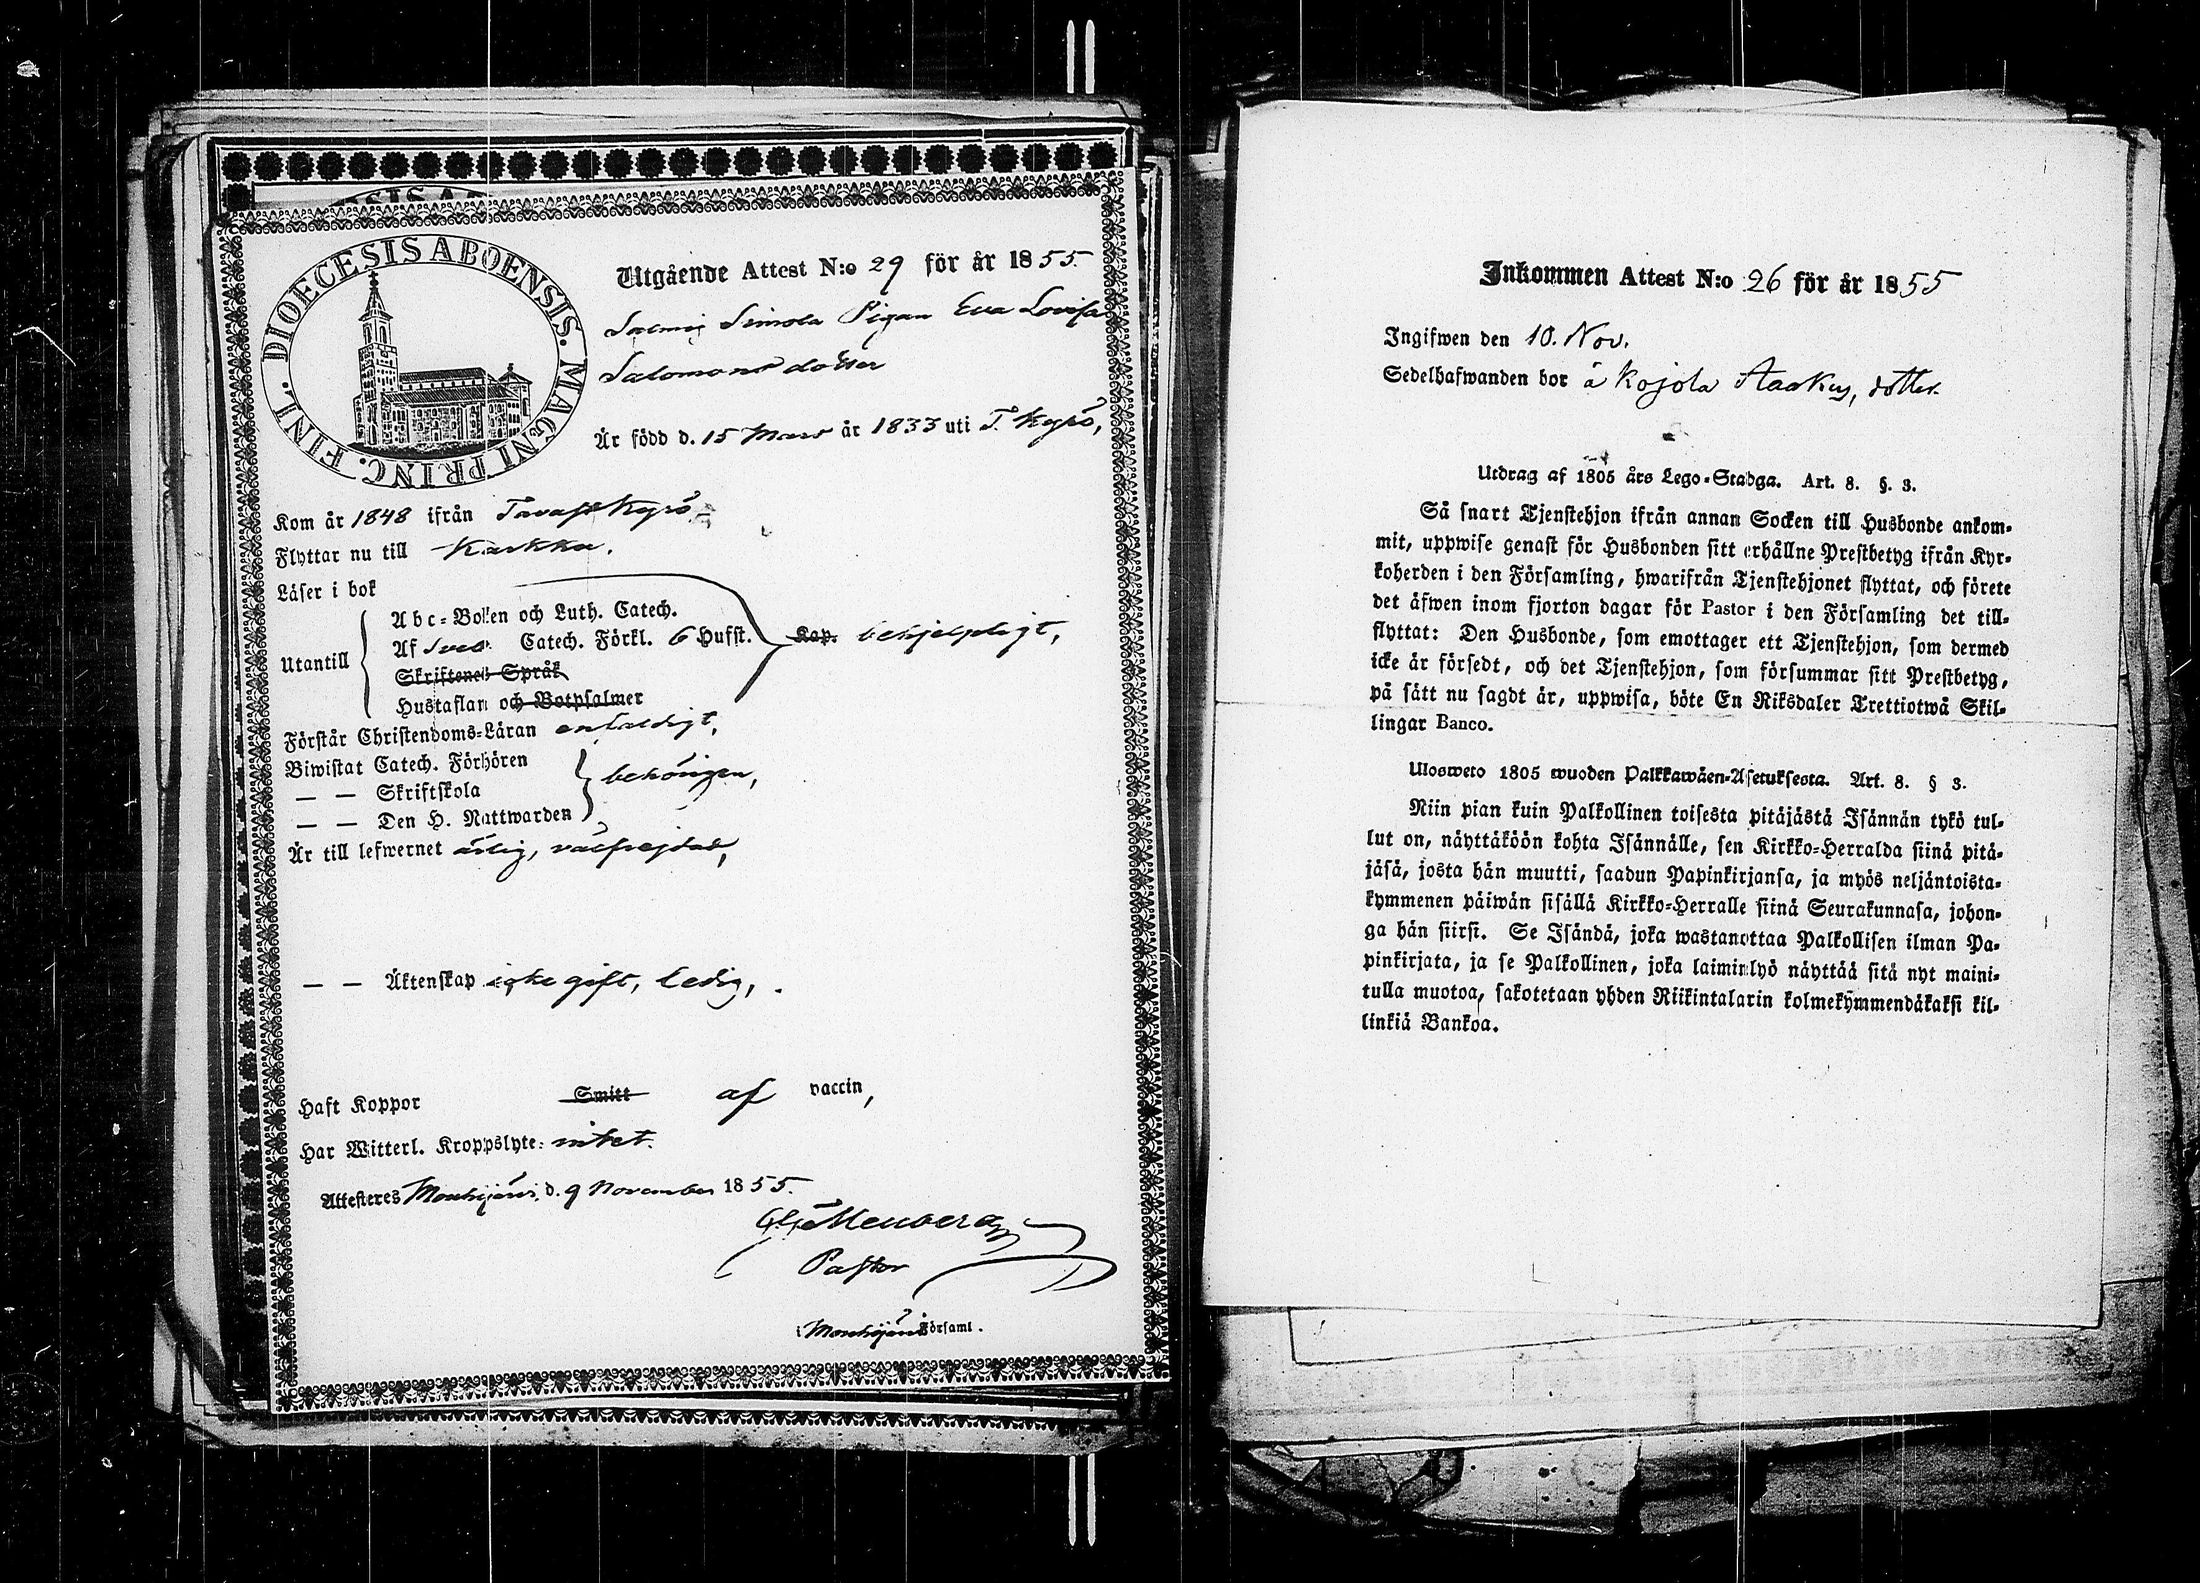 DIOECESIS ABOENSIS. MAGNI PRINC. FINL.
Utgående Attest N:o 29 för år 1855.
Salmis Simola Pigan Eva Lovisa
Salomonsdotter
Är född d. 15 Mars år 1833 uti T. Kyrö,
Kom år 1848 ifrån Tavastkyrö
Flyttar nu till Karkku.
Läser i bok
Abc-Boken och Luth. Catech.
Utantill Af Sveb. Catech. Förkl. 6 Hufst. Kap. behjelpligt,
Skriftenes Språk
Hustaflan och Botpsalmer
Förstår Christendoms-Läran enfaldigt,
Biwistat Catech. Förhören
— — Skriftskola behörigen,
— — Den H. Nattwarden
Är till lefwernet ärlig, välfrejdad,
— — Äktenskap icke gift, ledig,
Haft Koppor Smitt af vaccin,
Har Witterl. Kroppslyte: intet.
Attesteres Mouhijärvi d. 9 November 1855.
Pastor
i Mouhijärvi Församl.
Inkommen Attest N:o 26 för år 1855
Ingifwen den 10. Nov.
Sedelhafwanden bor å Kojola Aaakus, dotter.
Utdrag af 1805 års Lego-Stadga. Art. 8. §. 3.
Så snart Tjenstehjon ifrån annan Socken till Husbonde ankom-
mit, uppwise genast för Husbonden sitt erhållne Prestbetyg ifrån Kyr-
koherden i den Församling, hwarifrån Tjenstehjonet flyttat, och förete
det äfwen inom fjorton dagar för Pastor i den Församling det till-
flyttat: Den Husbonde, som emottager ett Tjenstehjon, som dermed
icke är försedt, och det Tjenstehjon, som försummar sitt Prestbetyg,
på sätt nu sagdt är, uppwisa, böte En Riksdaler Trettiotwå Skil-
lingar Banco.
Ulosweto 1805 wuoden Palkkawäen-Asetuksesta. Art. 8. § 3.
Niin pian kuin Palkollinen toisesta pitäjästä Isännän tykö tul-
lut on, näyttäköön kohta Isännälle, sen Kirkko-Herralda siinä pitä-
jäsä, josta hän muutti, saadun Papinkirjansa, ja myös neljäntoista-
kymmenen päiwän sisällä Kirkko-Herralle siinä Seurakunnasa, johon-
ga hän siirsi. Se Isändä, joka wastanottaa Palkollisen ilman Pa-
pinkirjata, ja se Palkollinen, joka laiminlyö näyttää sitä nyt maini-
tulla muotoa, sakotetaan yhden Riikintalarin kolmekymmendäkaksi kil-
linkiä Bankoa.